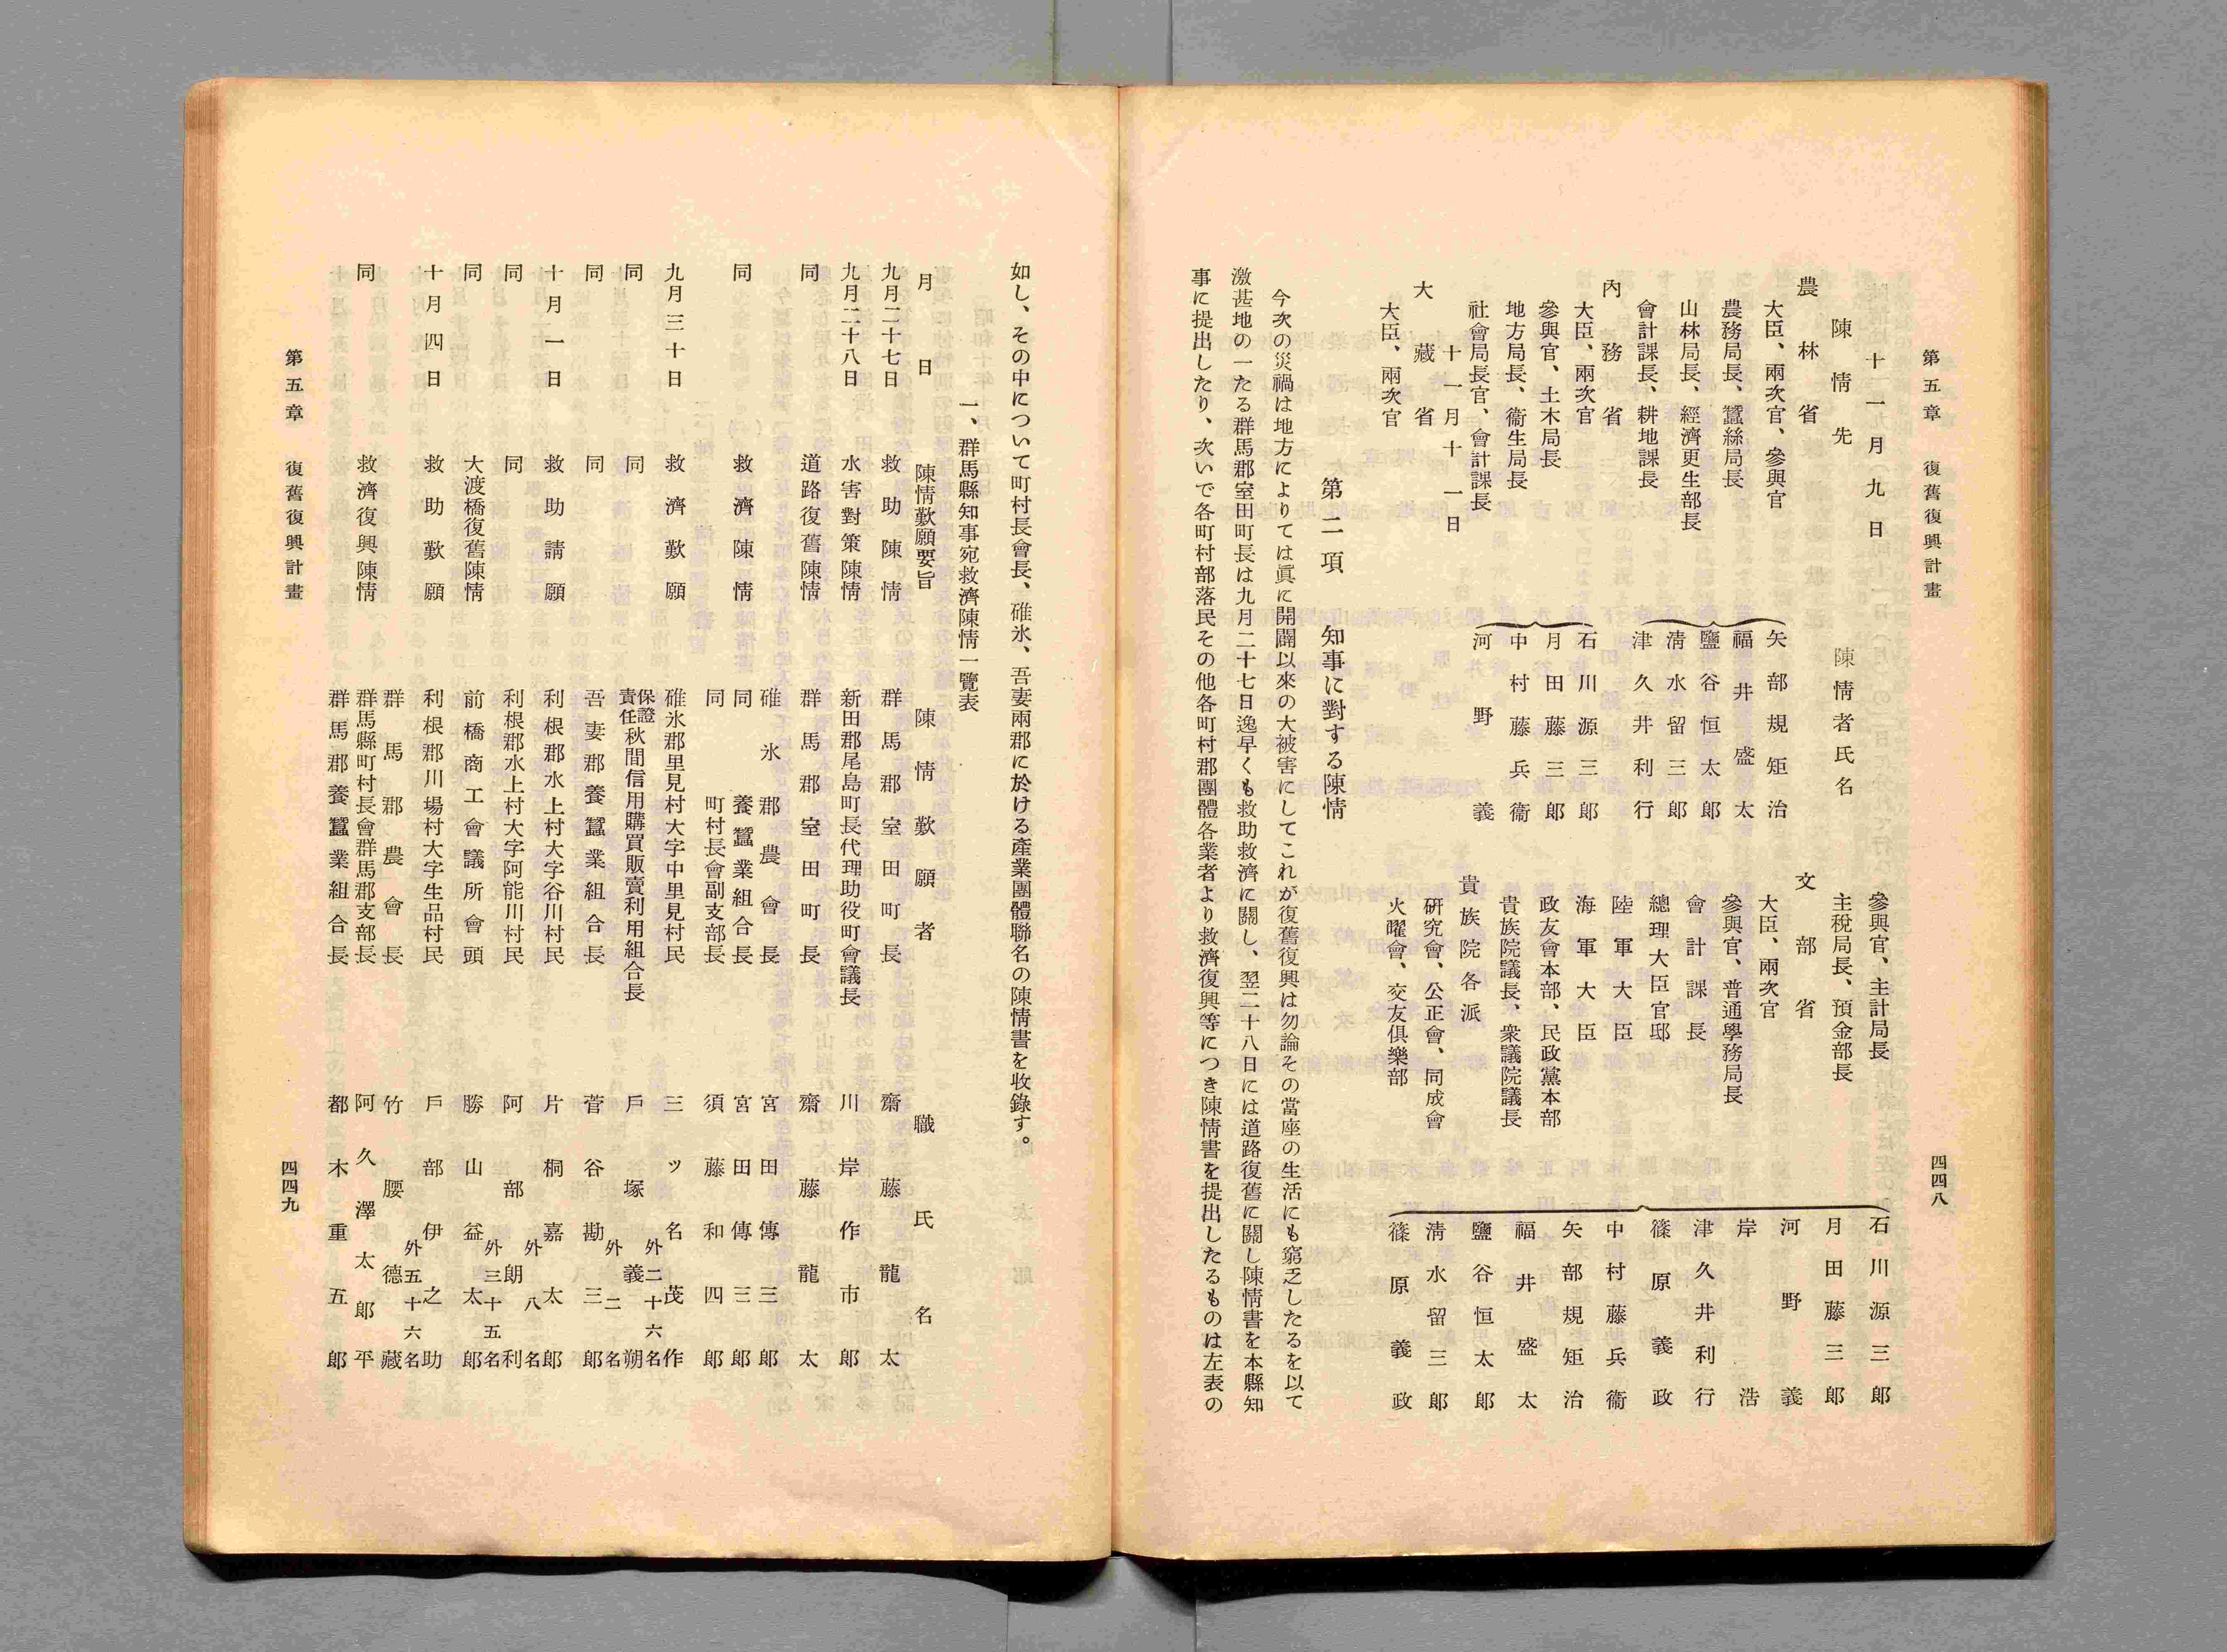 第五章 復舊復興計畫
四四八
十一月九日
陳情先
陳情者氏名
農林省
大臣、兩次官、參與官
農務局長、蠶絲局長
山林局長、經濟更生部長
會計課長、耕地課長
矢部規矩治
福井盛太
鹽谷恒太郎
淸水留三郎
津久井利行
內務省
大臣、兩次官
參與官、土木局長
地方局長、衞生局長
社會局長官、會計課長
石川源三郎
月田藤三郎
中村藤兵衞
河野義
十一月十一日
大藏省
大臣、兩次官
參與官、主計局長
主稅局長、預金部長
文部省
大臣、兩次官
參與官、普通學務局長
會計課長
總理大臣官邸
陸軍大臣
海軍大臣
政友會本部、民政黨本部
貴族院議長、衆議院議長
貴族院各派
硏究會、公正會、同成會
火曜會、交友俱樂部
石川源三郎
月田藤三郎
河野義
岸浩
津久井利行
篠原義政
中村藤兵衞
矢部規矩治
福井盛太
鹽谷恒太郎
淸水留三郎
篠原義政
第二項 知事に對する陳情
今次の災禍は地方によりては眞に開闢以來の大被害にしてこれが復舊復興は勿論その當座の生活にも窮乏したるを以て
激甚地の一たる群馬郡室田町長は九月二十七日逸早くも救助救濟に關し、翌二十八日には道路復舊に關し陳情書を本縣知
事に提出したり、次いで各町村部落民その他各町村郡團體各業者より救濟復興等につき陳情書を提出したるものは左表の
如し、その中について町村長會長、碓氷、吾妻兩郡に於ける產業團體聯名の陳情書を收錄す。
一、群馬縣知事宛救濟陳情一覽表
月日 陳情歎願要旨 陳情歎願者 職氏名
九月二十七日 救助陳情 群馬郡室田町長 齋藤龍太
九月二十八日 水害對策陳情 新田郡尾島町長代理助役町會議長 川岸作市郎
同 道路復舊陳情 群馬郡室田町長 齋藤龍太
碓氷郡農會長 宮田傳三郎
同 救濟陳情 同 養蠶業組合長 宮田傳三郎
同 町村長會副支部長 須藤和四郎
九月三十日 救濟歎願 碓氷郡里見村大字中里見村民 三ッ名茂作
外二十六名
同 同 保證責任秋間信用購買販賣利用組合長 戶塚義朔
外二名
同 同 吾妻郡養蠶業組合長 菅谷勘三郎
十月一日 救助請願 利根郡水上村大字谷川村民 片桐嘉太郎
外八名
同 同 利根郡水上村大字阿能川村民 阿部朗利
外三十五名
同 大渡橋復舊陳情 前橋商工會議所會頭 勝山益太郎
十月四日 救助歎願 利根郡川場村大字生品村民 戶部伊之助
外五十六名
群馬郡農會長 竹腰德藏
同 救濟復興陳情 群馬縣町村長會群馬郡支部長 阿久澤太郎平
群馬郡養蠶業組合長 都木重五郎
第五章 復舊復興計畫
四四九